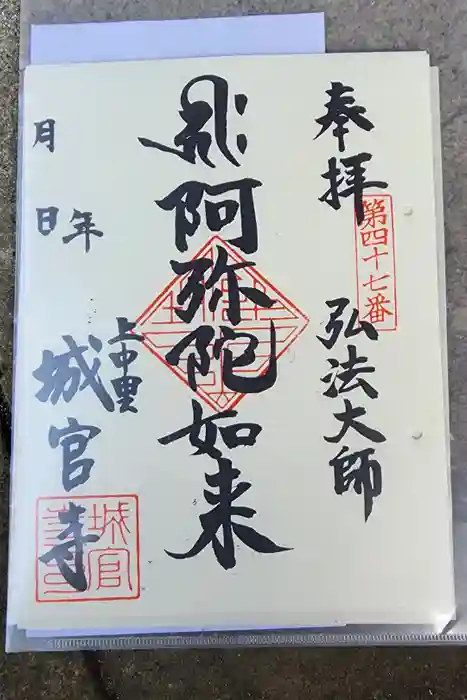 奉拝
第四十七番
弘法大師
阿弥陀如来
年
月
日
上中里
城官寺
城官寺